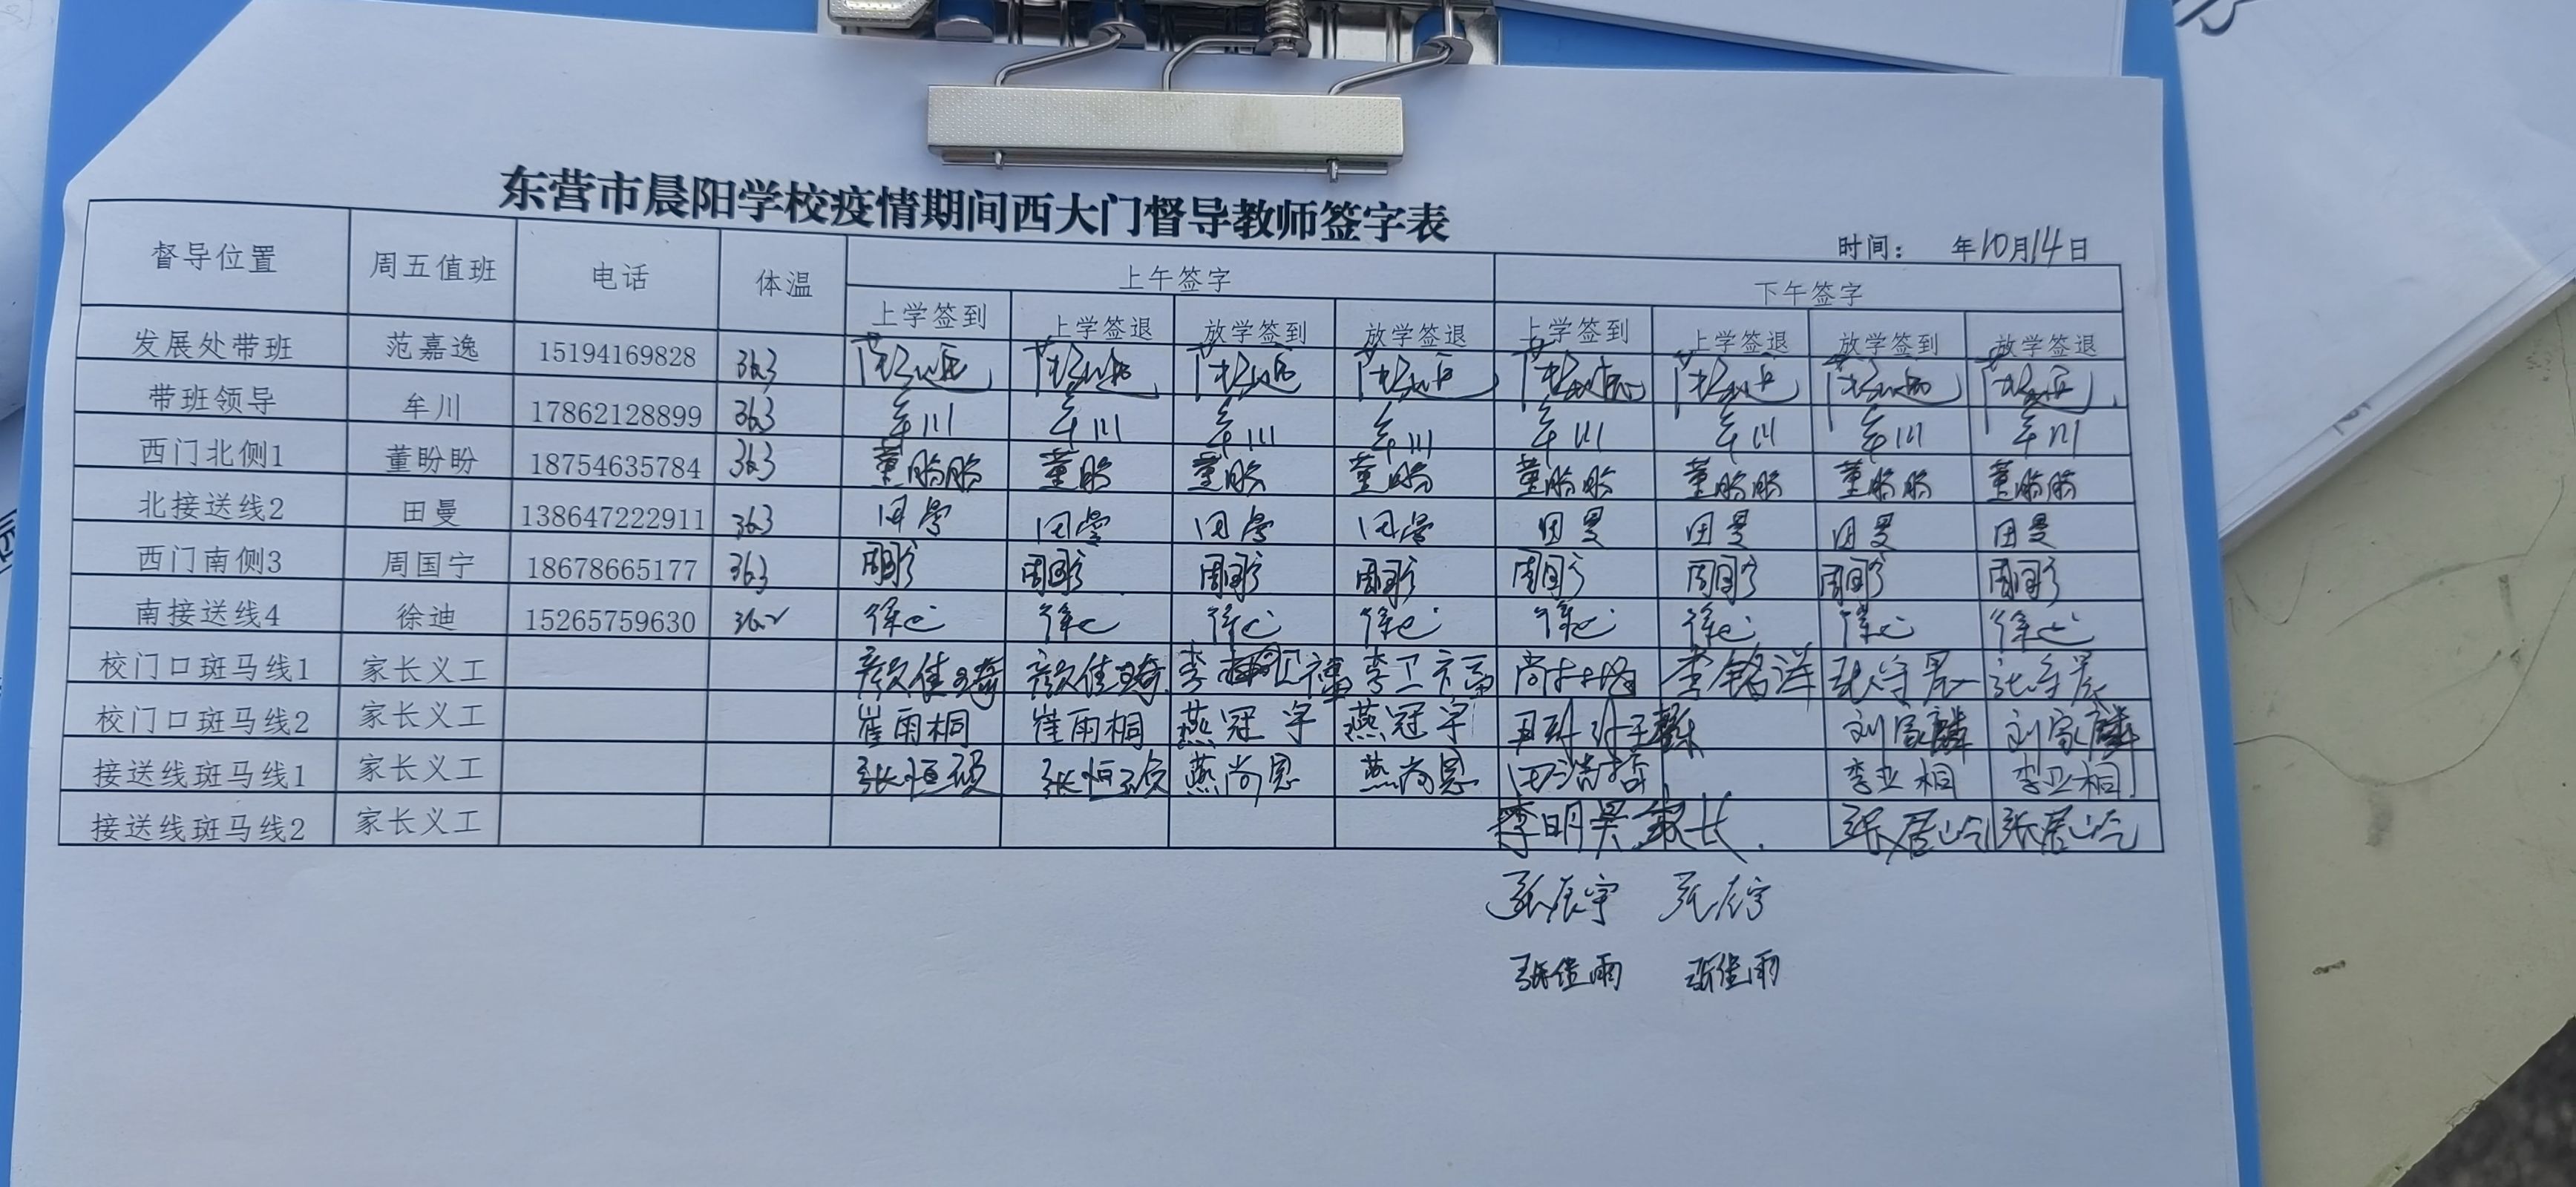 东营市晨阳学校疫情期间西大门督导教师签字表
时间： 年10月14日
督导位置 周五值班 电话 体温 上午签字 下午签字
上学签到 上学签退 放学签到 放学签退 上学签到 上学签退 放学签到 放学签退
发展处带班 范嘉逸 15194169828 36.3
带班领导 牟川 17862128899 36.3 牟川 牟川 牟川 牟川 牟川 牟川 牟川 牟川
西门北侧1 董盼盼 18754635784 36.3 董盼盼 董盼 董盼 董盼 董盼盼 董盼盼 董盼盼 董盼盼
北接送线2 田曼 138647222911 36.3 田曼 田曼 田曼 田曼 田曼 田曼 田曼 田曼
西门南侧3 周国宁 18678665177 36.3 周国宁 周国宁 周国宁 周国宁 周国宁 周国宁 周国宁 周国宁
南接送线4 徐迪 15265759630 36.2 徐迪 徐迪 徐迪 徐迪 徐迪 徐迪 徐迪 徐迪
校门口斑马线1 家长义工 颜佳琦 颜佳琦 李卫福 李卫福 李铭洋
校门口斑马线2 家长义工 崔雨桐 崔雨桐 燕冠宇 燕冠宇 刘家麟 刘家麟
接送线斑马线1 家长义工 张恒硕 张恒硕 燕尚恩 燕尚恩 田浩哲 李亚桐 李亚桐
接送线斑马线2 家长义工 李明昊家长
张辰宇 张辰宇
张佳雨 张佳雨